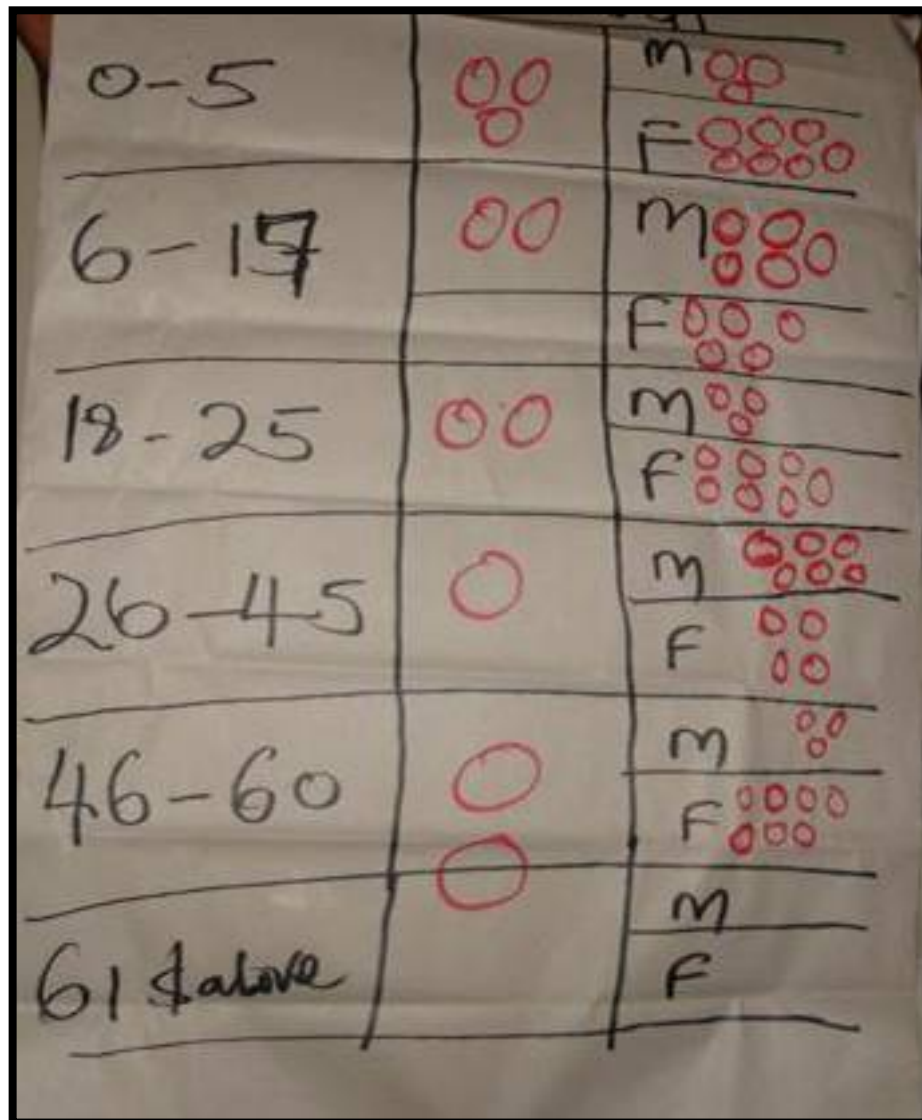 0-5
M
F
6-17
M
F
18-25
M
F
26-45
M
F
46-60
M
F
61 & above
M
F